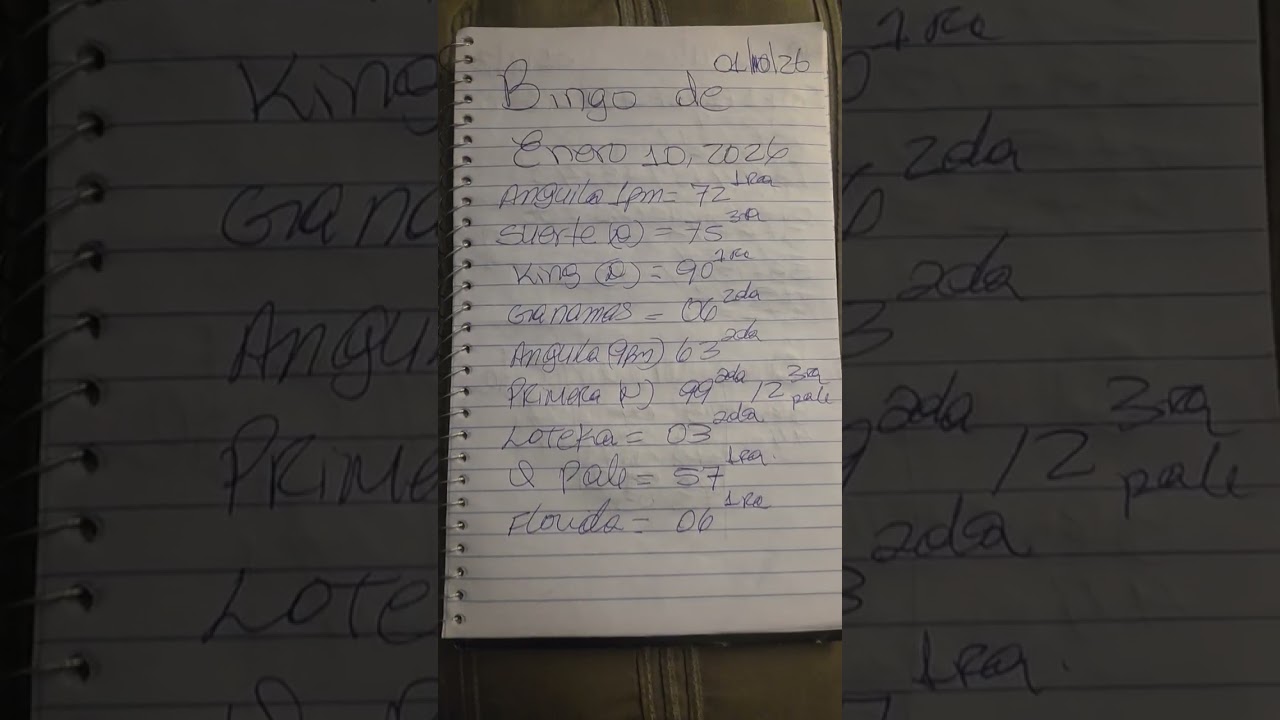 01/10/26
Bingo de
Enero 10, 2026
Anguila 1pm = 72 1ra
Suerte (D) = 75 3ra
King (D) = 90 1ra
Ganamas = 06 2da
Anguila (9pm) 63 2da
Primera N) 99 2da / 12 3ra pale
Loteka = 03 2da
Q Pale = 57 1ra.
Florida = 06 1ra